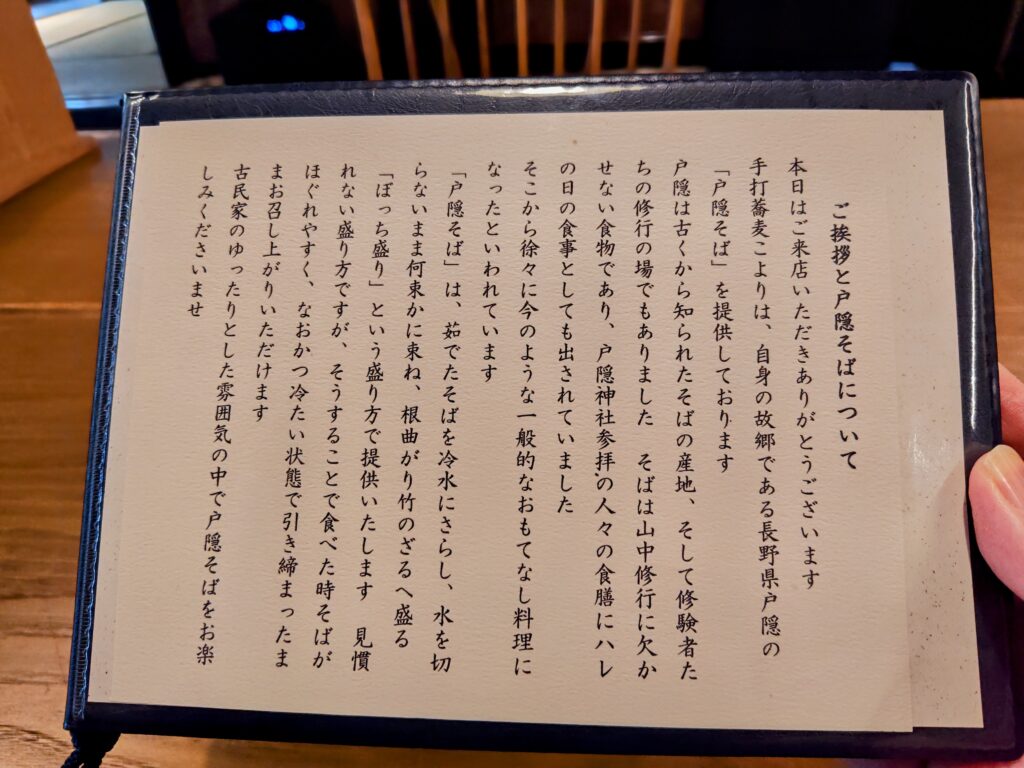 ご挨拶と戸隠そばについて
本日はご来店いただきありがとうございます
手打蕎麦こよりは、自身の故郷である長野県戸隠の
「戸隠そば」を提供しております
戸隠は古くから知られたそばの産地、そして修験者た
ちの修行の場でもありました　そばは山中修行に欠か
せない食物であり、戸隠神社参拝の人々の食膳にハレ
の日の食事としても出されていました
そこから徐々に今のような一般的なおもてなし料理に
なったといわれています
「戸隠そば」は、茹でたそばを冷水にさらし、水を切
らないまま何束かに束ね、根曲がり竹のざるへ盛る
「ぼっち盛り」という盛り方で提供いたします　見慣
れない盛り方ですが、そうすることで食べた時そばが
ほぐれやすく、なおかつ冷たい状態で引き締まったま
まお召し上がりいただけます
古民家のゆったりとした雰囲気の中で戸隠そばをお楽
しみくださいませ